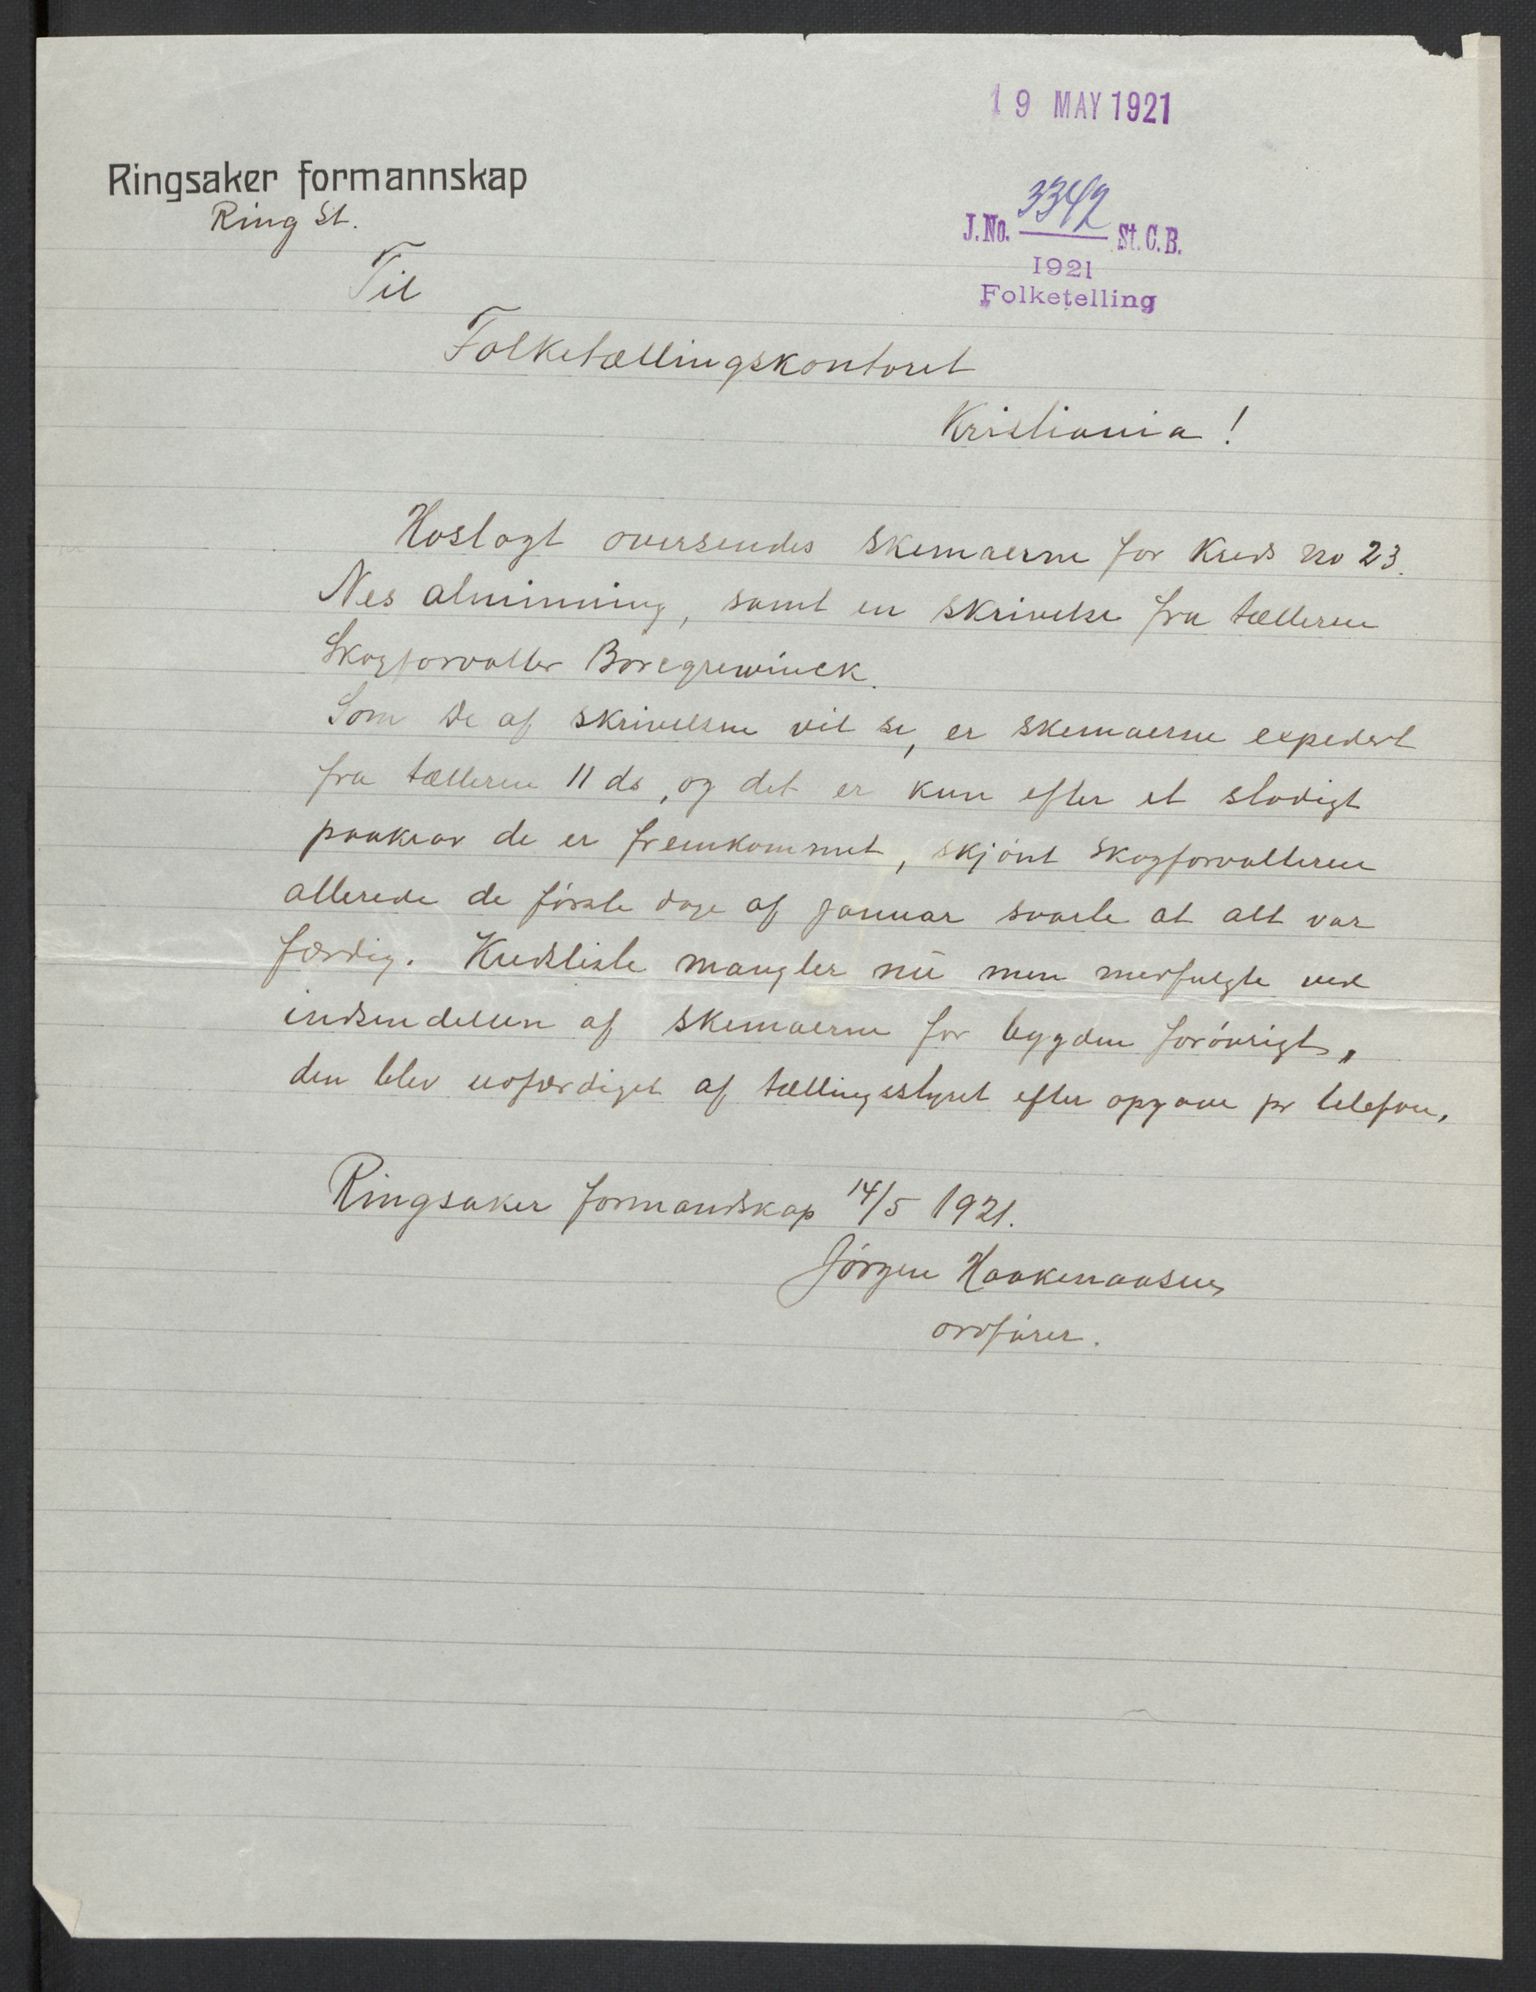 19 MAY 1921
Ringsaker formannskap
Ring St.
J.No. 3342 St.C.B.
1921
Folketelling
Til
Folketællingskontoret
Kristiania !
Hoslagt oversendes skemaerne for Kreds no 23.
Nes alminning, samt en skrivelse fra tælleren
Skogforvalter Boregrewinck.
Som De af skrivelsen vil se, er skemaerne expedert
fra tælleren 11 ds, og det er kun efter et stadigt
paakrav de er fremkommet, skjønt Skogforvalteren
allerede de første dage af januar svarte at alt var
færdig. Kredsliste mangler nu men medfulgte ved
indsendelsen af skemaerne for bygden forøvrigt,
den blev utfærdiget af tællingsstyret efter opgave pr telefon.
Ringsaker formandskap 14/5 1921.
Jørgen Haakenaasen
ordfører.